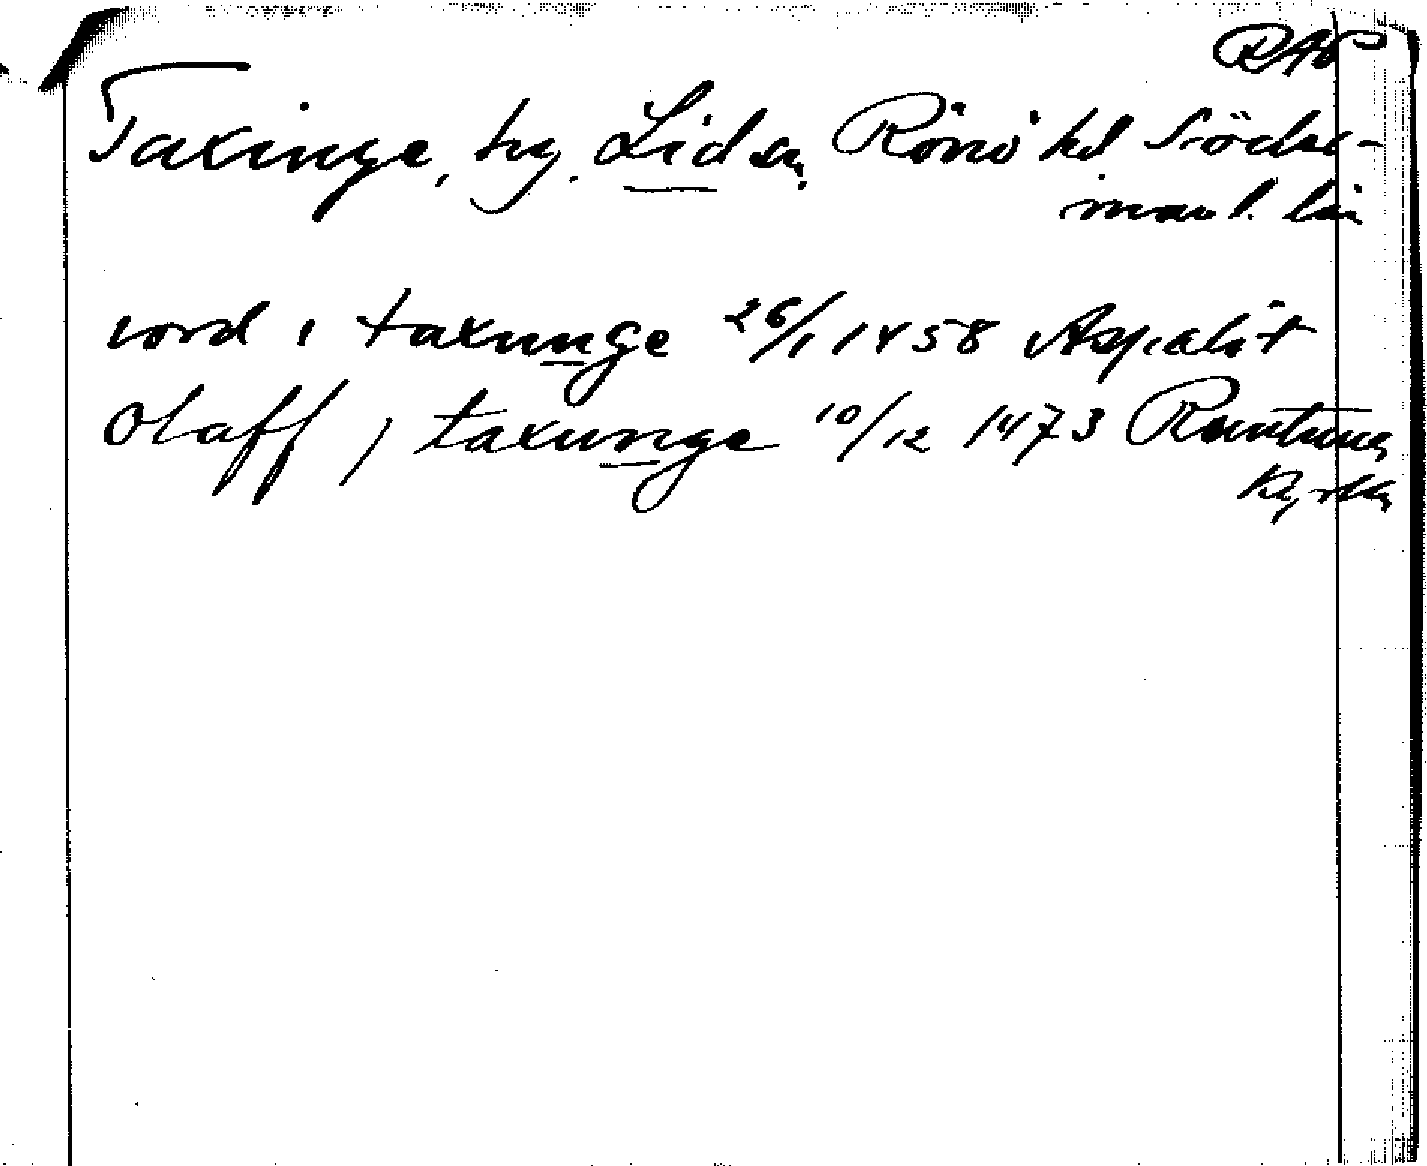 RAP
Taxinge, by. Lids sn, Rönö hd Söder-
manl. län
iord i taxunge 26/1 1458 Aspalöt
Olaff i taxunge 10/12 1473 Runtuna
kyrka